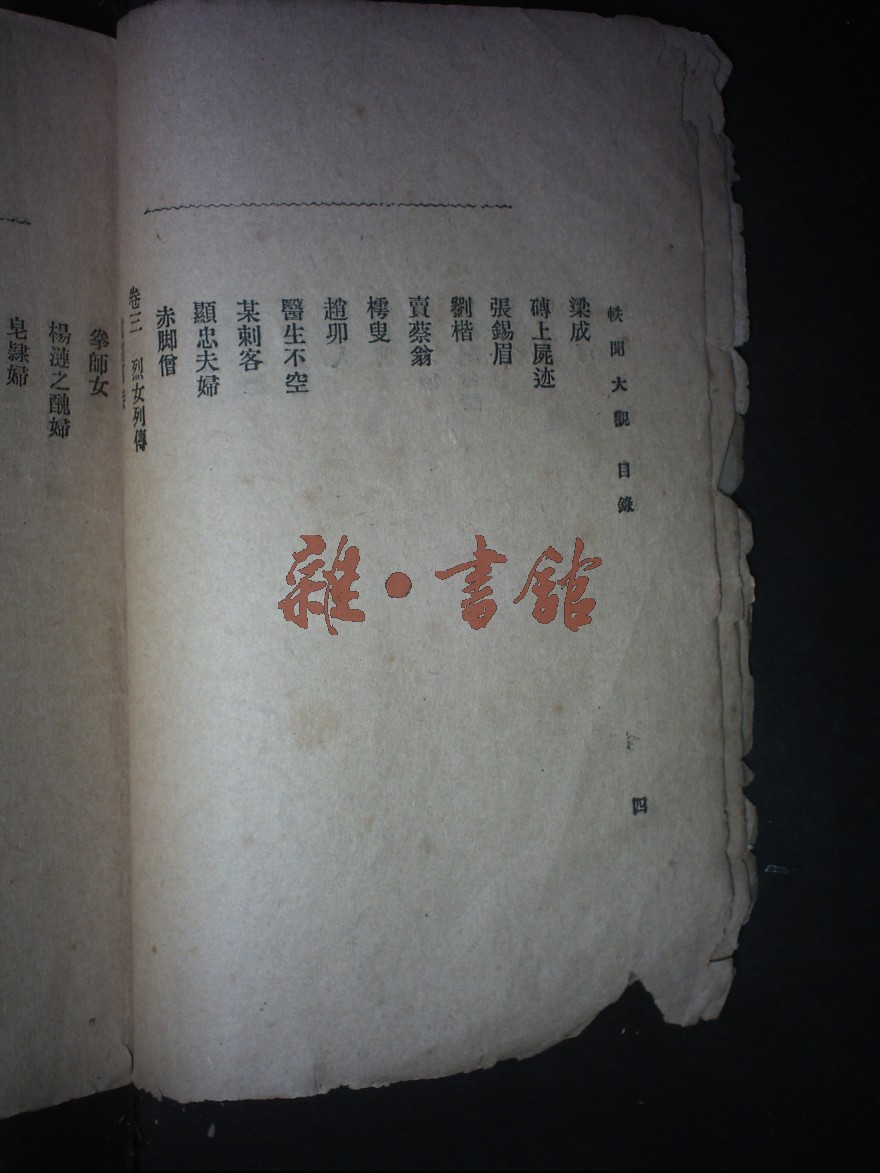 軼聞大觀 目錄
四
梁成
磚上屍迹
張錫眉
劉楷
賣蔡翁
樗叟
趙卯
醫生不空
某刺客
顯忠夫婦
赤脚僧
卷三 烈女列傳
拳師女
楊漣之醜婦
皂隸婦
雜·書館